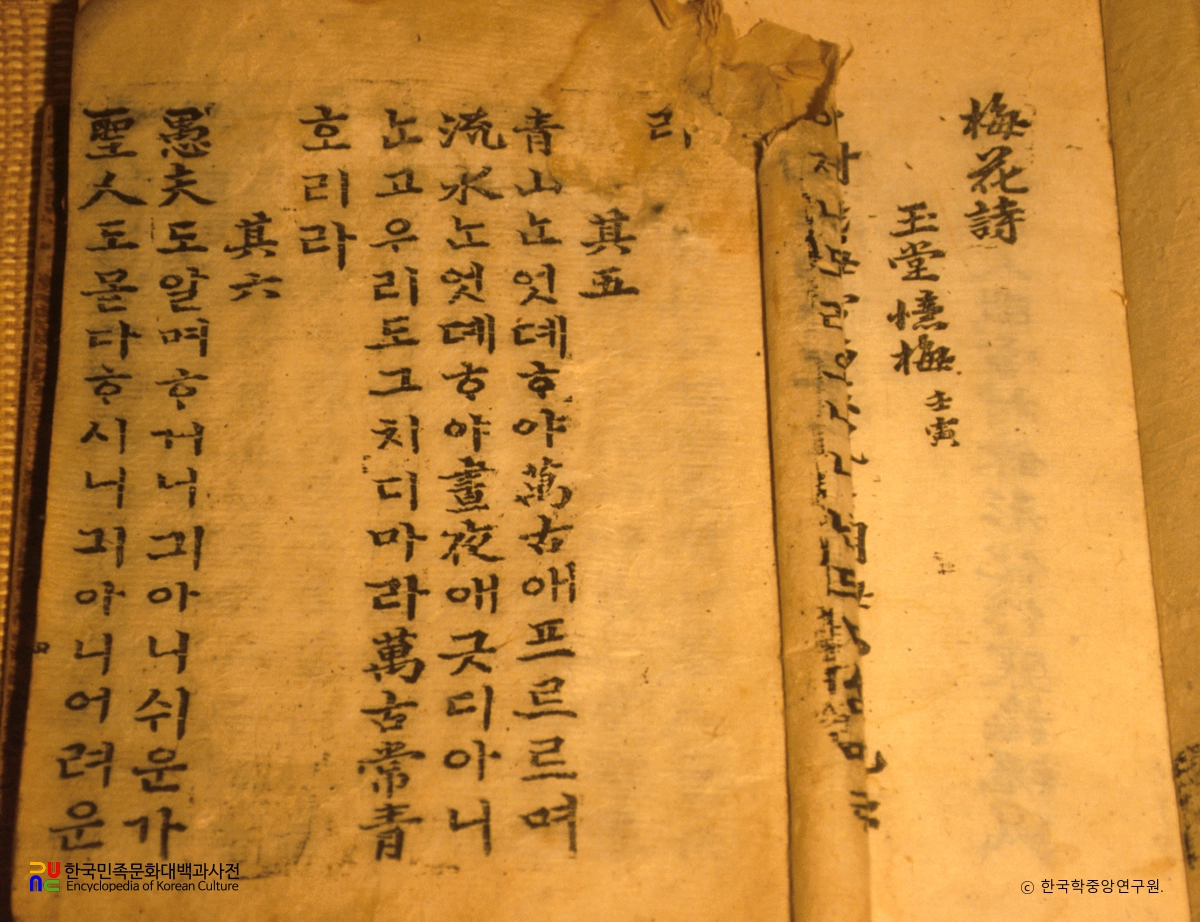 梅花詩
玉堂憶梅 壬寅
其五
青山ᄂᆞᆫ엇뎨ᄒᆞ야萬古애프르르며
流水ᄂᆞᆫ엇뎨ᄒᆞ야晝夜애긋디아니
ᄂᆞᆫ고우리도그치디마라萬古常青
호리라
其六
愚夫도알며ᄒᆞ거니긔아니쉬운가
聖人도몯다ᄒᆞ시니긔아니어려운
한국민족문화대백과사전
Encyclopedia of Korean Culture
ⓒ 한국학중앙연구원.